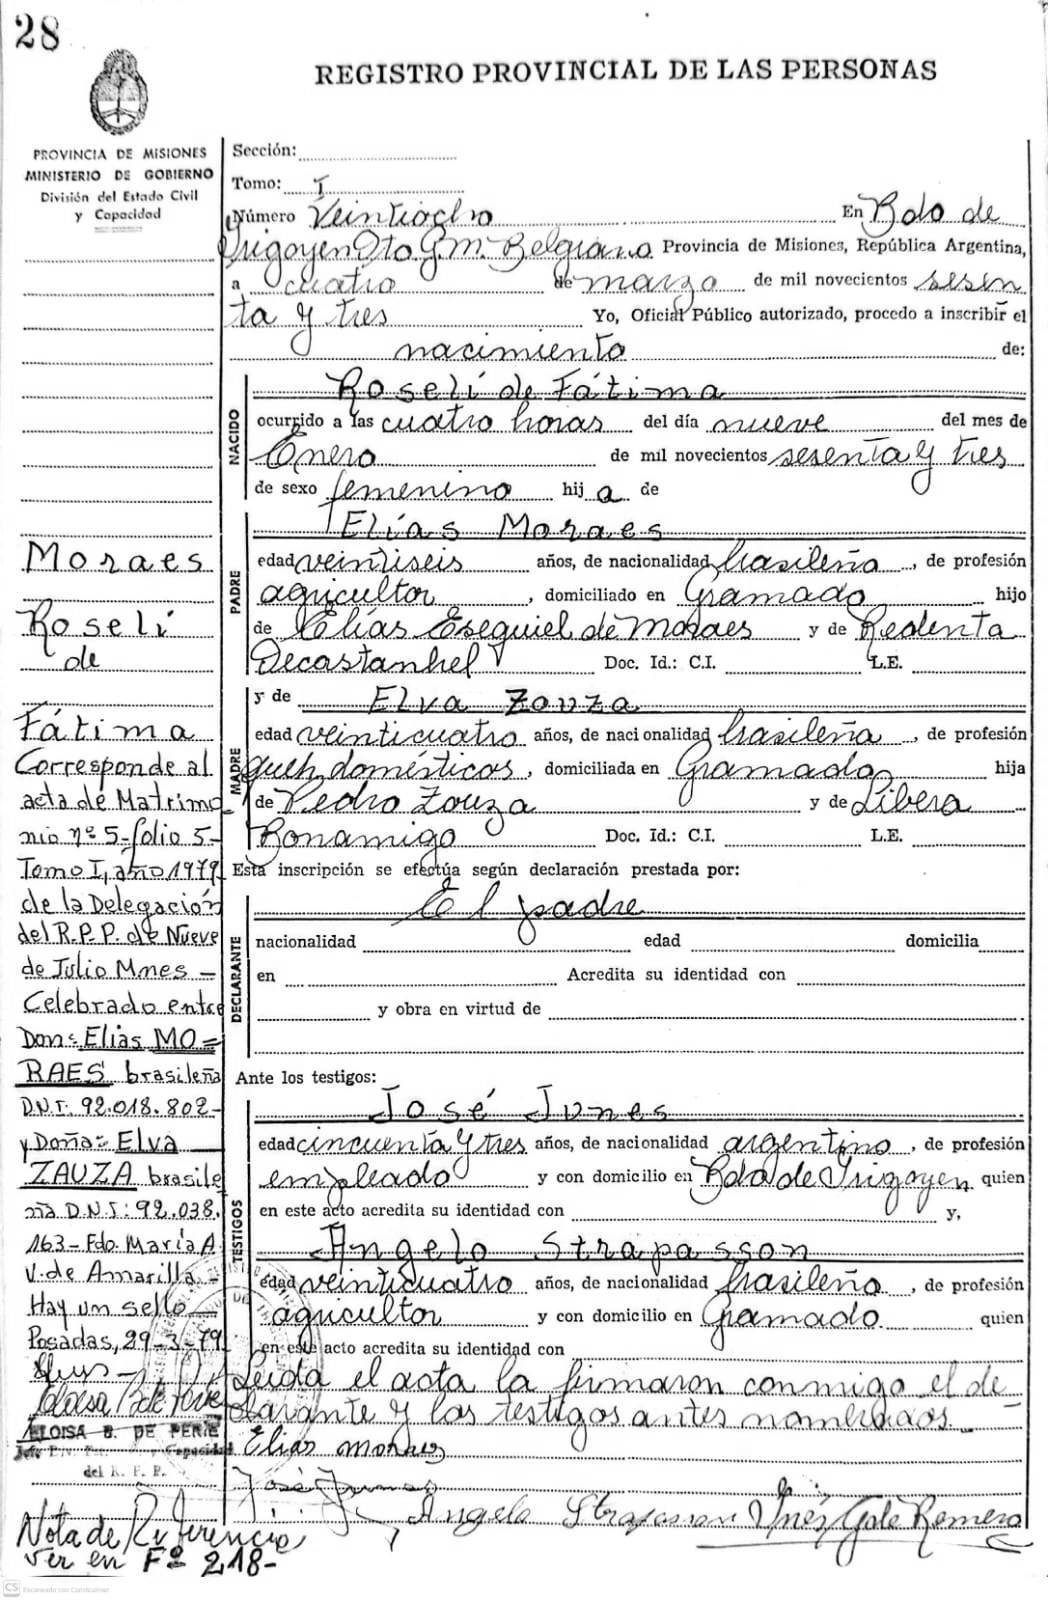 28
REGISTRO PROVINCIAL DE LAS PERSONAS
PROVINCIA DE MISIONES
MINISTERIO DE GOBIERNO
División del Estado Civil
y Capacidad
Moraes
Roselí
de
Fátima
Corresponde al
acta de Matrimo
nio nº 5-folio 5-
Tomo I, año 1979
de la Delegación
del R.P.P. de Nueve
de Julio Mnes -
Celebrado entre
Don: Elias MO=
RAES brasileña
D.N.I. 92.018.802-
y Doña: Elva
ZAUZA brasile
ña D.N.I: 92.038.
163- Fdo. María A
V. de Amarilla -
Hay um sello
Posadas, 29-3-79
ELOISA B. DE
del R. P. P.
Nota de Referencia
ver en Fº 218-
Sección:
Tomo: I
Número Veintiocho En Bdo de
Yrigoyen Dto G.M. Belgrano Provincia de Misiones, República Argentina,
a cuatro de marzo de mil novecientos sesen
ta y tres Yo, Oficial Público autorizado, procedo a inscribir el
nacimiento de:
NACIDO
Roselí de Fátima
ocurrido a las cuatro horas del día nueve del mes de
Enero de mil novecientos sesenta y tres
de sexo femenino hija de
PADRE
Elías Moraes
edad veintiseis años, de nacionalidad brasileña, de profesión
agricultor, domiciliado en Gramado hijo
de Elías Esequiel de Moraes y de Redenta
Decastanhel Doc. Id.: C.I. L.E.
MADRE
y de Elva Zouza
edad veinticuatro años, de nacionalidad brasileña, de profesión
queh. domésticos, domiciliada en Gramado hija
de Pedro Zouza y de Libera
Bonamigo Doc. Id.: C.I. L.E.
Esta inscripción se efectúa según declaración prestada por:
DECLARANTE
El padre
nacionalidad edad domicilia
en Acredita su identidad con
y obra en virtud de
Ante los testigos:
TESTIGOS
José Junes
edad cincuenta y tres años, de nacionalidad argentino, de profesión
empleado y con domicilio en Bdo de Yrigoyen quien
en este acto acredita su identidad con y,
Angelo Strapasson
edad veinticuatro años, de nacionalidad brasileño, de profesión
agricultor y con domicilio en Gramado quien
en este acto acredita su identidad con
Leida el acta la firmaron conmigo el de
clarante y los testigos antes nombrados.
Elias moraes
José
Angelo Strapasson Inés Gole Romero
CS Escaneado con CamScanner